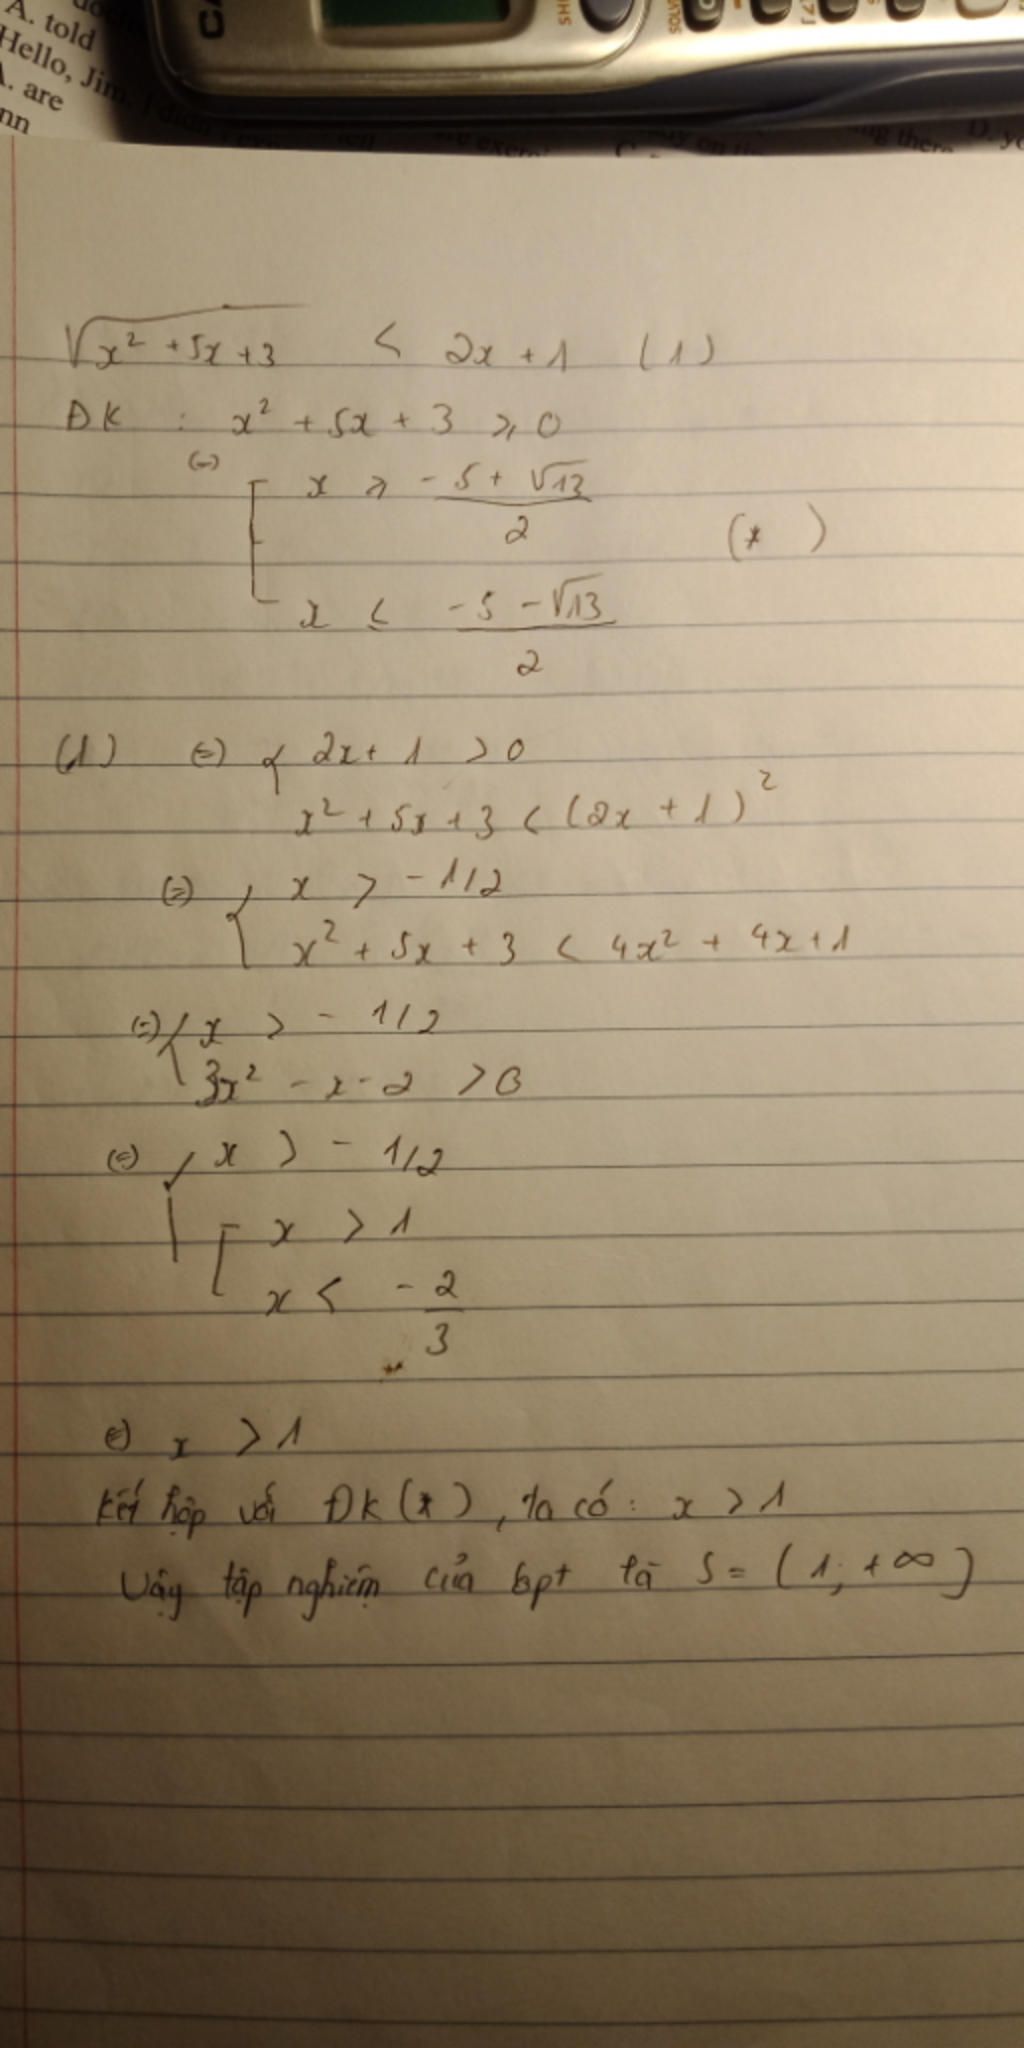 A. told
Hello, Jim. I didn't
A. are
nn
SHI
SOLV
D. yo
√(x² + 5x + 3) < 2x + 1 (1)
ĐK : x² + 5x + 3 ≥ 0
(=) [ x ≥ (-5 + √13)/2
(*)
x ≤ (-5 - √13)/2
(1) (=) { 2x + 1 > 0
x² + 5x + 3 < (2x + 1)²
(=) { x > -1/2
x² + 5x + 3 < 4x² + 4x + 1
(=) { x > - 1/2
3x² - x - 2 > 0
(=) { x > - 1/2
[ x > 1
x < - 2/3
(=) x > 1
Kết hợp với ĐK (*), ta có : x > 1
Vậy tập nghiệm của bpt là S = (1; +∞)